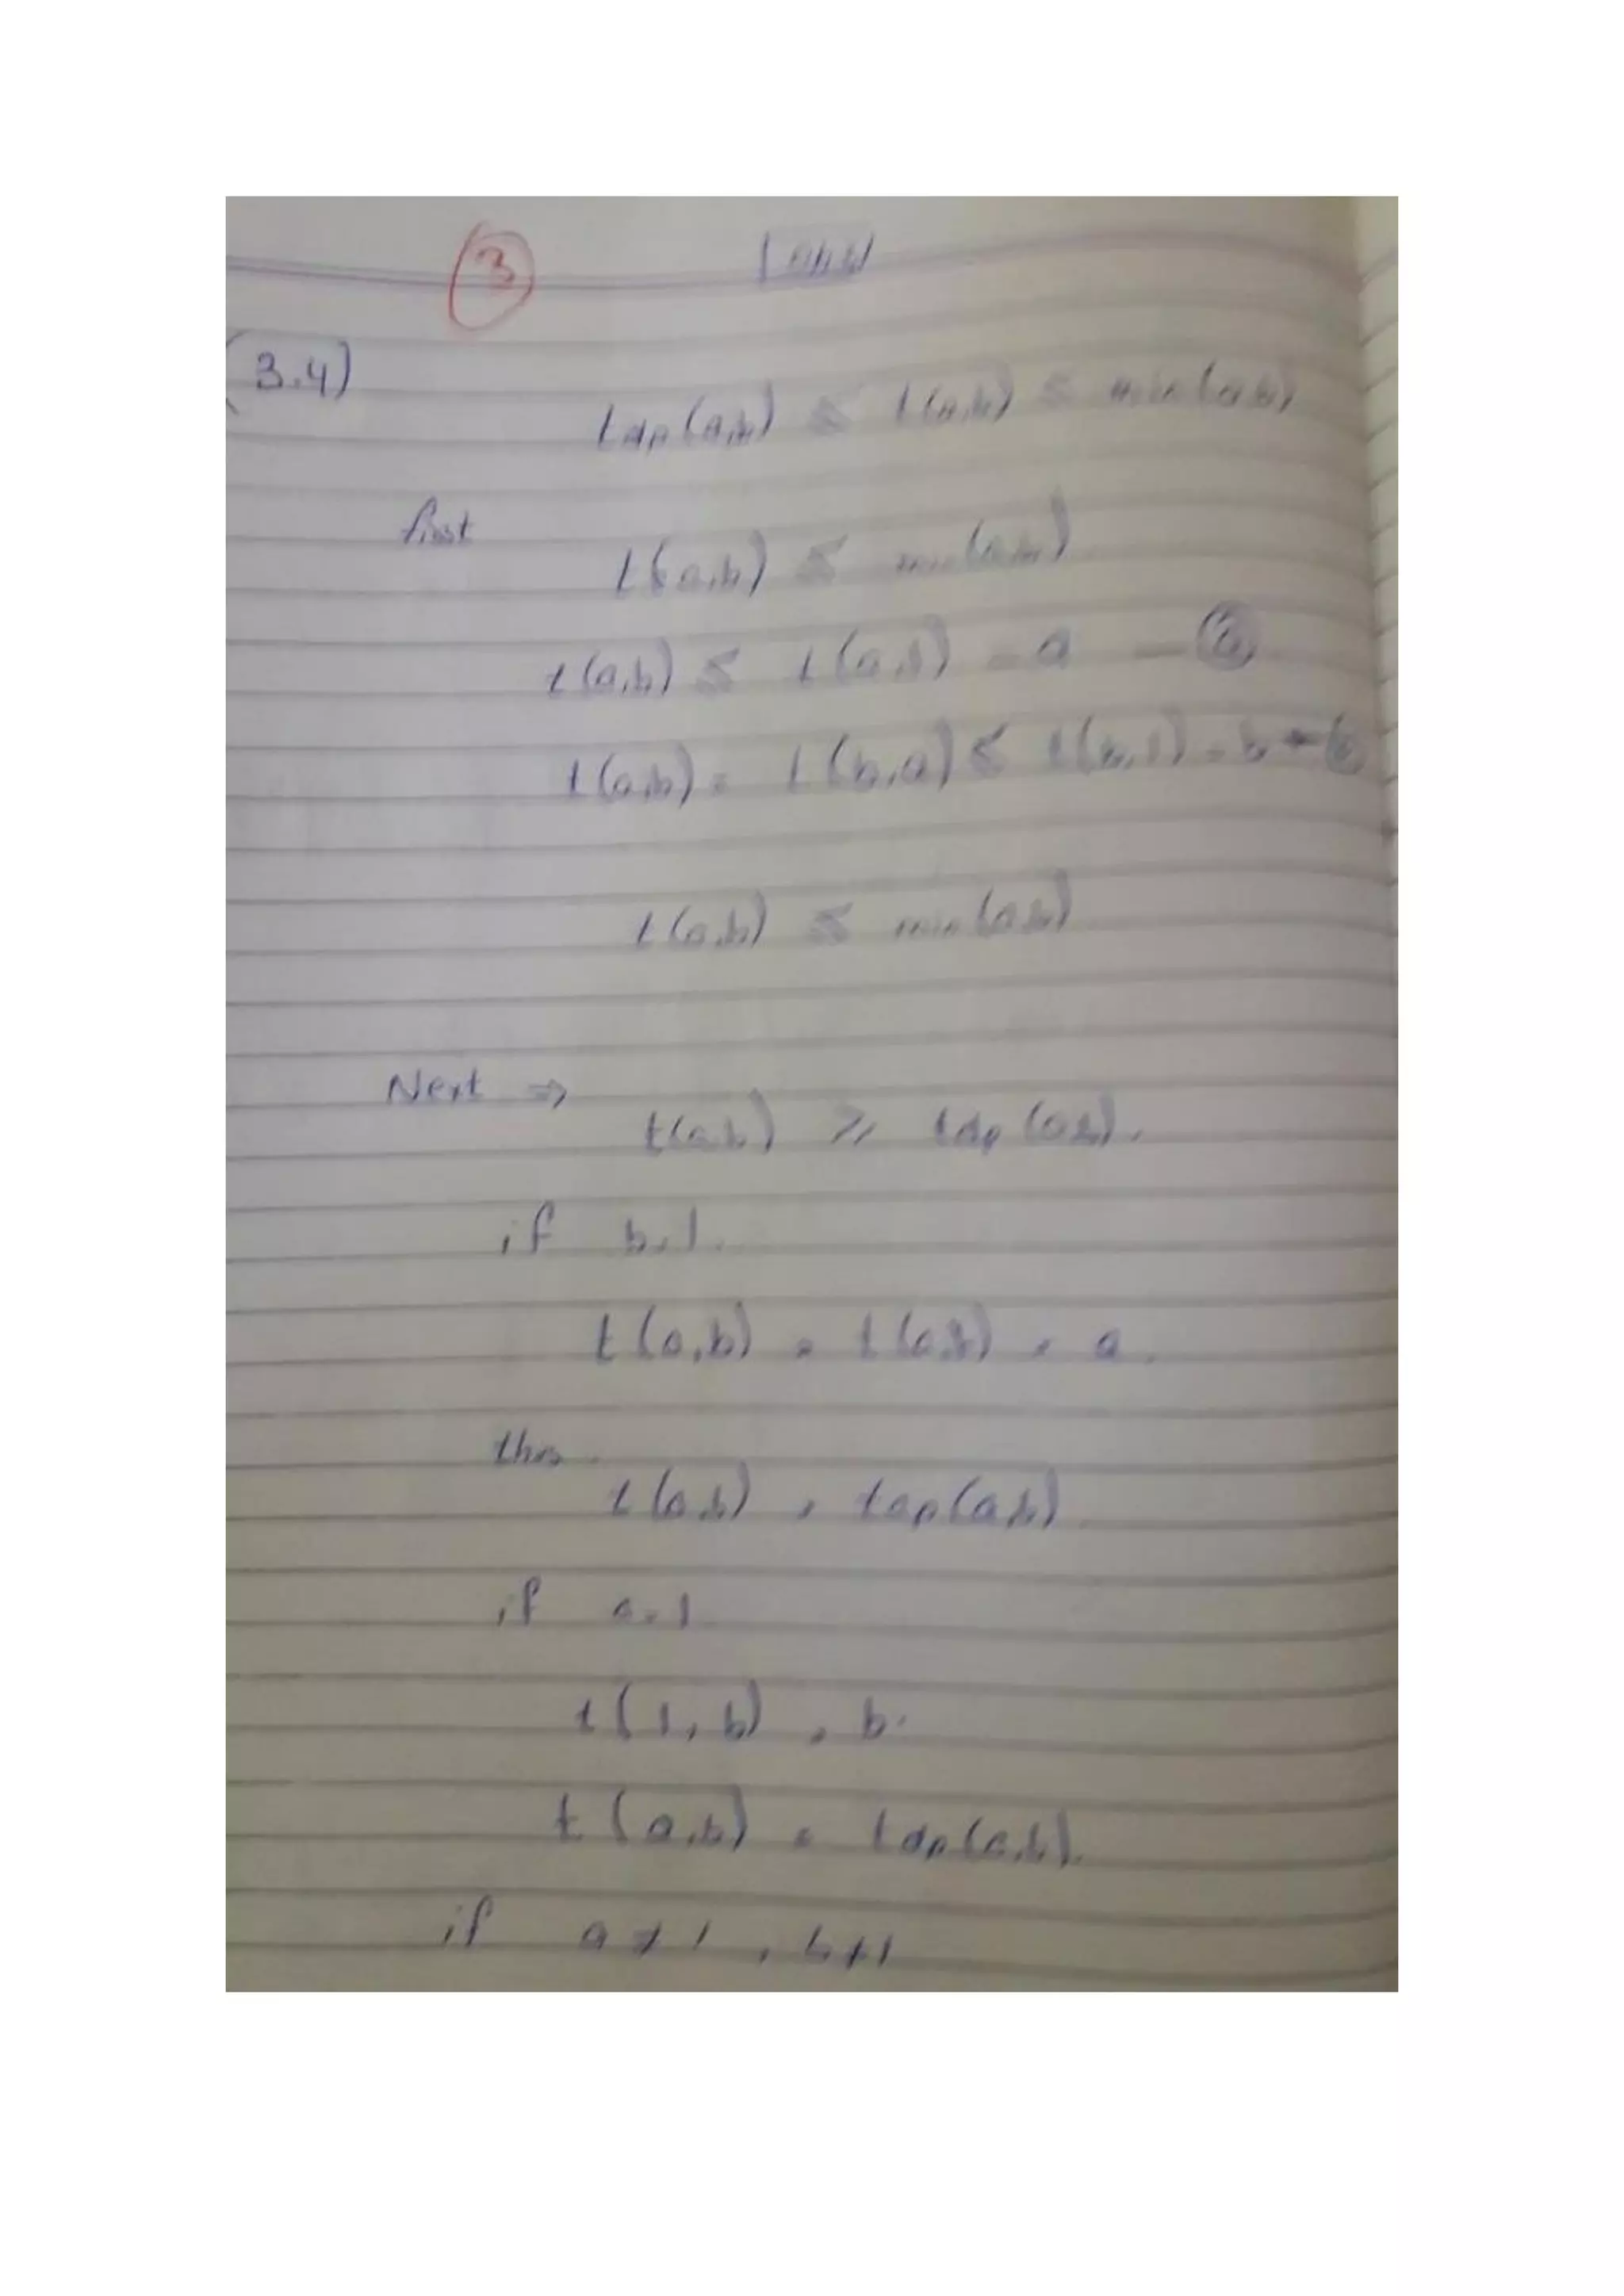 3
(3.4)
tdp(a,b) ≤ t(a,b) ≤ min(a,b)
first
t(a,b) ≤ min(a,b)
t(a,b) ≤ t(a,1) = a —
t(a,b) = t(b,a) ≤ t(b,1) = b —
t(a,b) ≤ min(a,b)
Next ⇒
t(a,b) ≥ tdp(a,b).
if b=1.
t(a,b) = t(a,1) = a.
thus
t(a,b) = tdp(a,b)
if a=1
t(1,b) = b.
t(a,b) = tdp(a,b).
if a≠1, b≠1